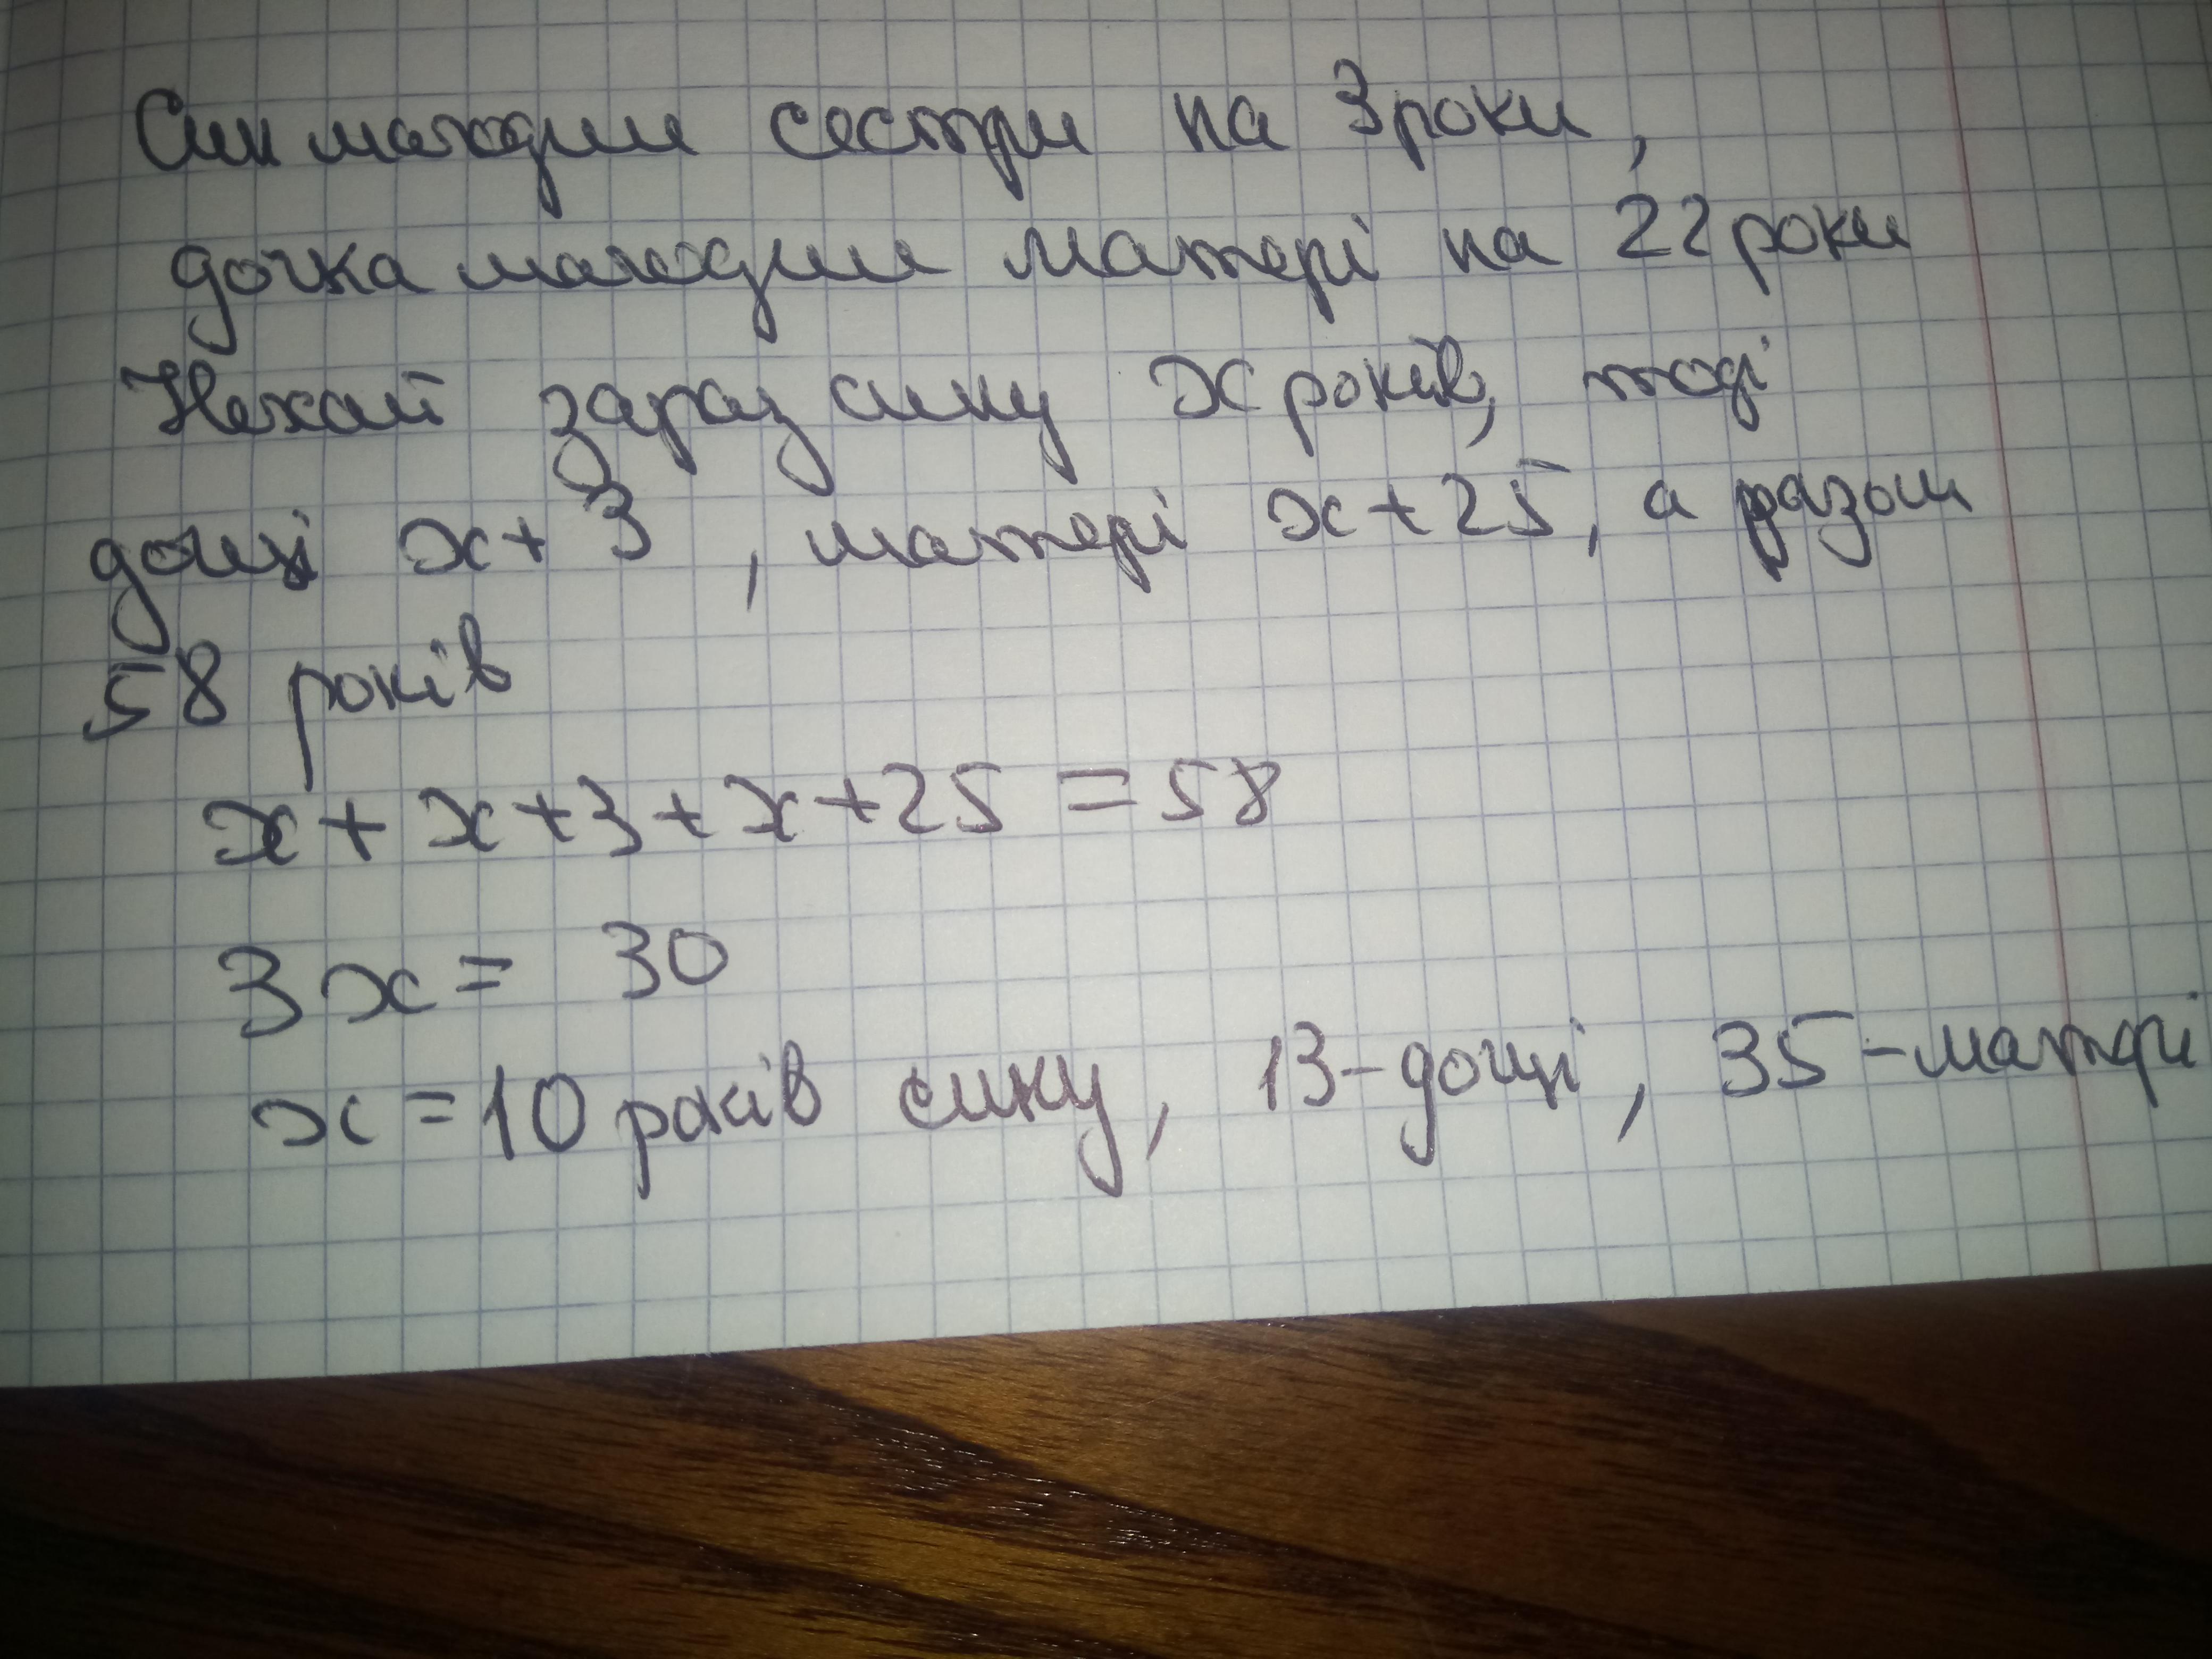 Син молодше сестри на 3 роки,
дочка молодше матері на 22 роки
Нехай зараз сину x років, тоді
доці x+3, матері x+25, а разом
58 років
x+x+3+x+25=58
3x= 30
x=10 років сину, 13-доці, 35-матері